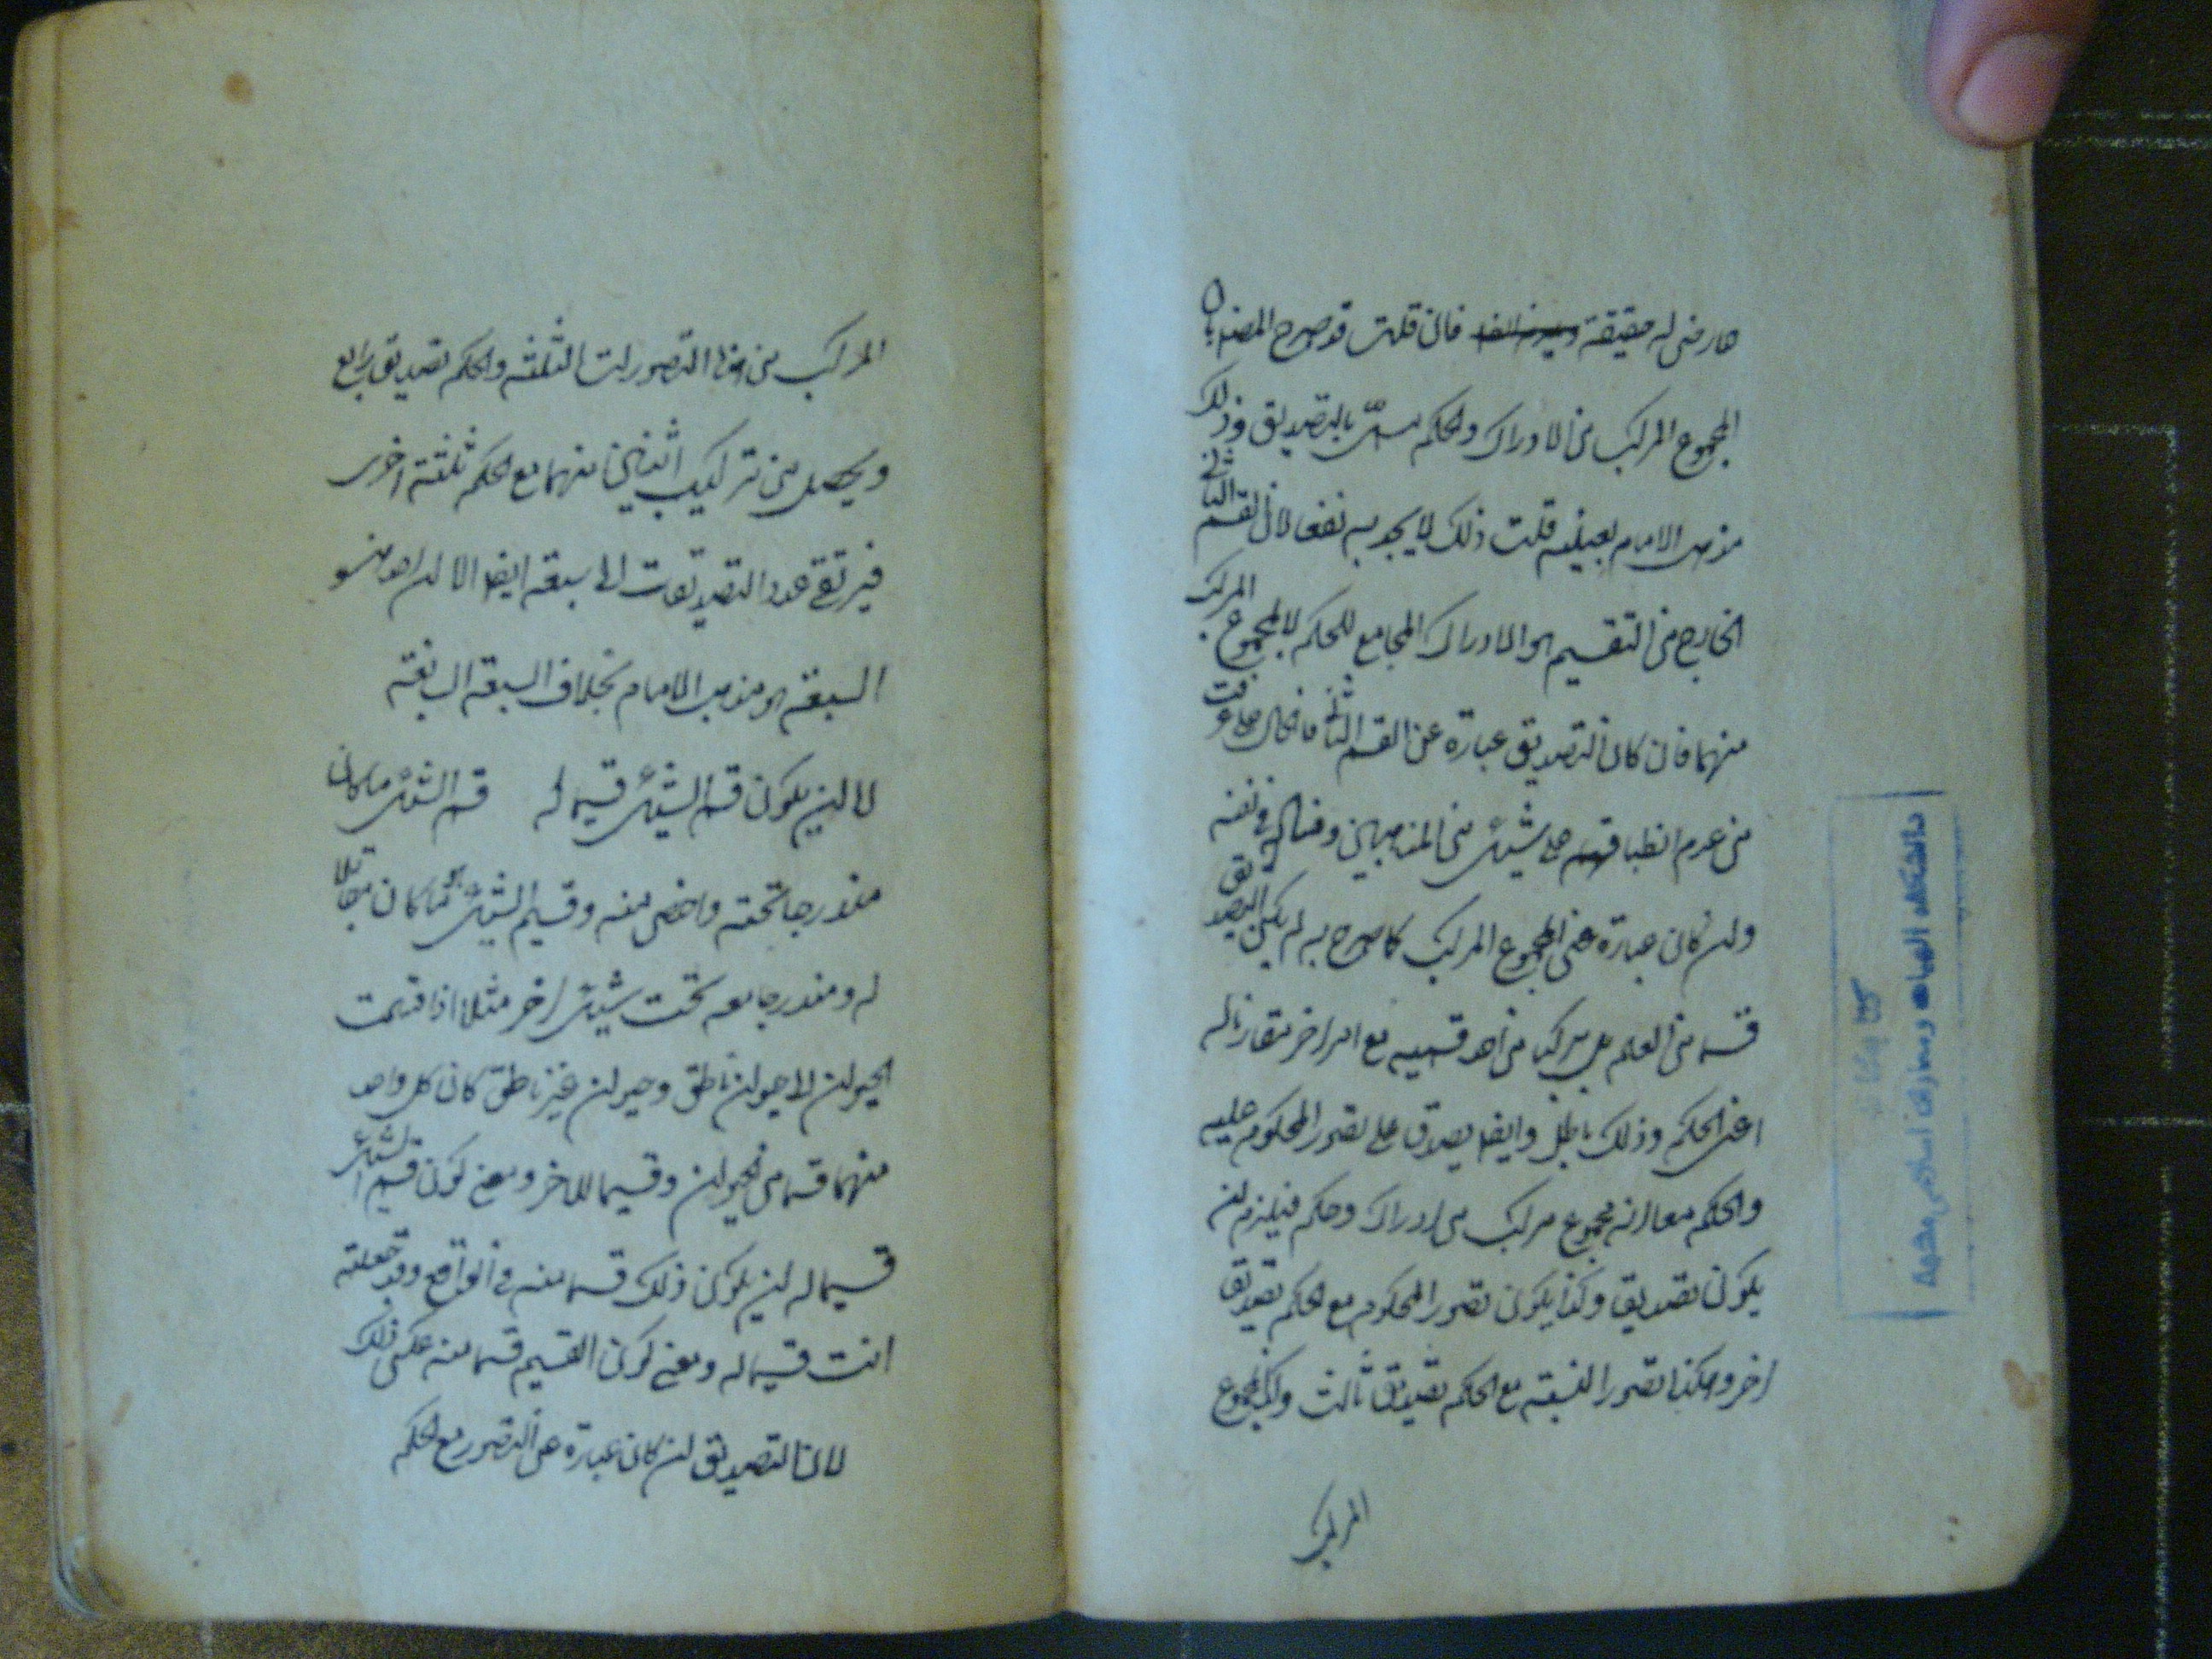 عارض له حقيقة فان قلت قد صرح المصنف بان
المجموع المركب من الادراك والحكم يسمى بالتصديق وذلك
مذهب الامام بعينه قلت ذلك لا يجديه نفعا لان القسم الثاني
الخارج من التقسيم هو الادراك المجامع للحكم لا المجموع المركب
منهما فان كان التصديق عبارة عن القسم الثاني فالحال على ما عرفت
من عدم انطباقه على شيئ من المذهبين وفساده في نفسه
وان كان عبارة عن المجموع المركب كما صرح به لم يكن التصديق
قسما من العلم بل مركبا من احد قسميه مع امر اخر مقارن له
اعنى الحكم وذلك باطل وايضا يصدق على تصور المحكوم عليه
والحكم معا انه مجموع مركب من ادراك وحكم فيلزم ان
يكون تصديقا وكذا يكون تصور المحكوم مع الحكم تصديق
اخر وهكذا تصور النسبة مع الحكم تصديق ثالث والمجموع
المركب
المركب من هذه التصورات الثلثه والحكم تصديق رابع
ويحصل من تركيب اثنين منهما مع الحكم ثلثة اخرى
فيرتقى عدد التصديقات الى سبعة ايضا الا ان احد هذه
السبعة هو مذهب الامام بخلاف السبعة السابقة
لا ان يكون قسم الشيئ قسيما له قسم الشيئ ما كان
مندرجا تحته واخص منه وقسيم الشيئ ما كان مقابلا
له ومندرجا معه تحت شيئ اخر مثلا اذا قسمت
الحيوان الى حيوان ناطق وحيوان غير ناطق كان كل واحد
منهما قسما من الحيوان وقسيما للاخر ومعنى كون قسم الشيئ
قسيما له ان يكون ذلك قسما منه في الواقع وقد جعلته
انت قسيما له ومعنى كون القسيم قسما منه عكس ذلك
لان التصديق ان كان عبارة عن التصور مع الحكم
دانشکده الهیات و معارف اسلامی مشهد